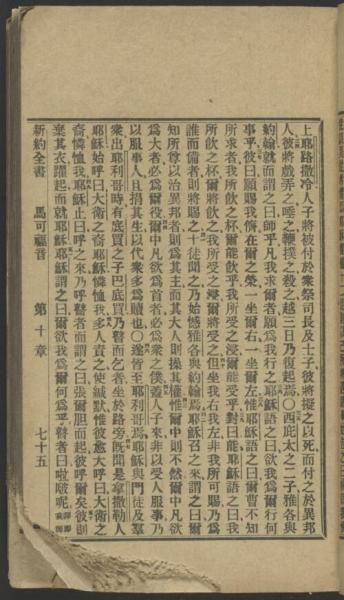 上耶路撒冷人子將被付於衆祭司長及士子彼將擬之以死而付之於異邦
人彼將戲弄之唾之鞭撲之殺之越三日乃復起焉〇西庇太之二子雅各與
約翰就而謂之曰師乎凡我求爾者願爲我行之耶穌語之曰欲我爲爾行何
事乎彼曰願賜我儕在爾之榮一坐爾右一坐爾左惟耶穌語之曰爾曹不知
所求者我所飲之杯爾能飲乎我所受之浸爾能受乎對曰能耶穌語之曰我
所飲之杯爾將飲之我所受之浸爾將受之但坐我右我左非我所可賜乃爲
誰而備者則將賜之十徒聞之乃始憾雅各與約翰焉耶穌召之來謂之曰爾
知所尊以治異邦者則爲其主而其大人則操其權惟爾中則不然爾中凡欲
爲大者必爲爾役爾中凡欲爲首者必爲衆之僕蓋人子來非以受人服事乃
以服事人且捐其生以代衆多爲贖也〇遂皆至耶利哥焉耶穌與門徒及羣
衆出耶利哥時有底買之子巴底買乃瞽而乞者坐於路旁既聞是拿撒勒人
耶穌始呼曰大衛之裔耶穌憐恤我多人責之使緘默惟彼愈大呼曰大衛之
裔憐恤我耶穌止曰呼之來乃呼瞽者而謂之曰張爾胆而起彼呼爾矣彼則
棄其衣躍起而就耶穌耶穌謂之曰爾欲我爲爾何爲乎瞽者曰啦啵呢
新約全書　馬可福音　第十章　七十五